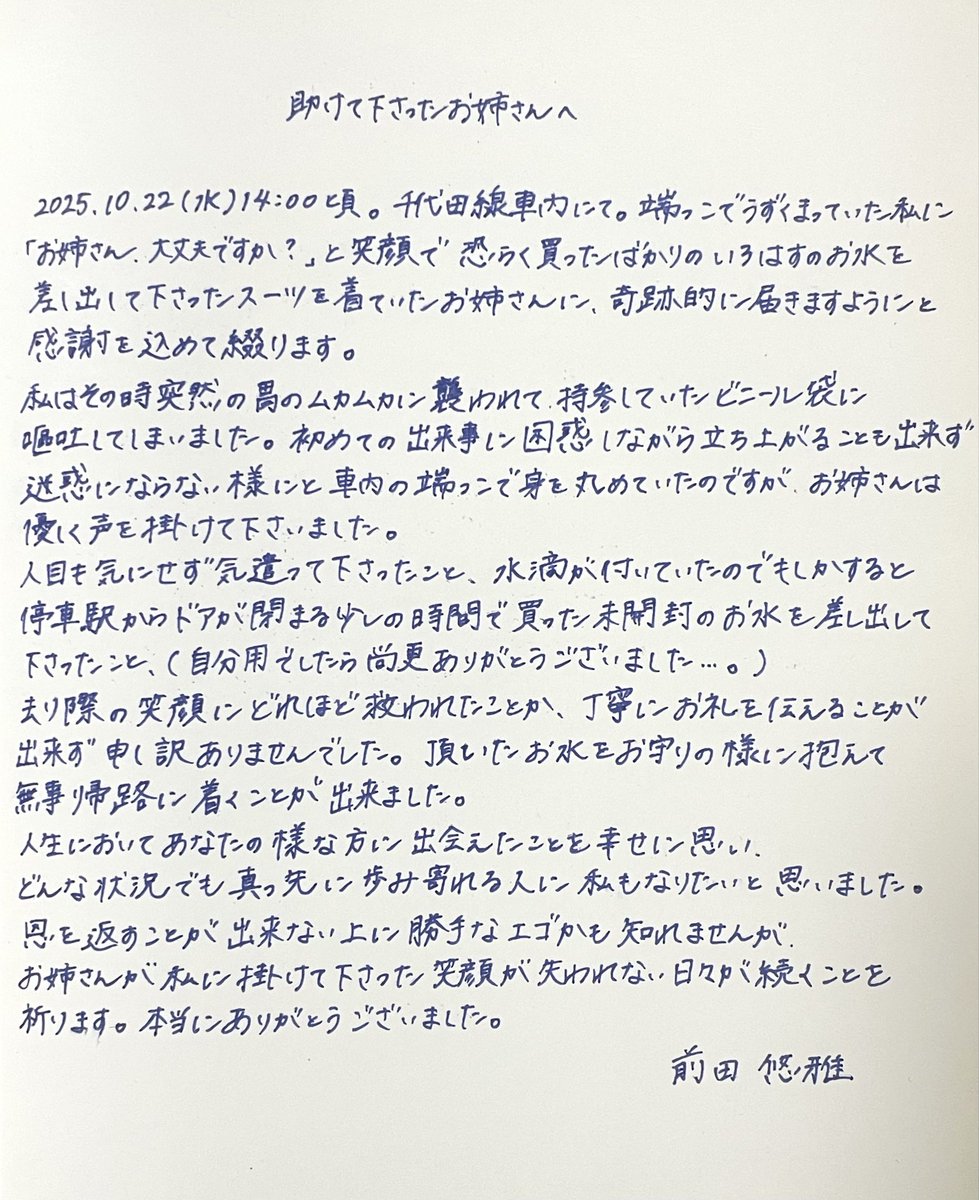 助けて下さったお姉さんへ
2025.10.22(水)14:00頃。千代田線車内にて。端っこでうずくまっていた私に
「お姉さん、大丈夫ですか?」と笑顔で恐らく買ったばかりのいろはすのお水を
差し出して下さったスーツを着ていたお姉さんに、奇跡的に届きますようにと
感謝を込めて綴ります。
私はその時突然の胃のムカムカに襲われて、持参していたビニール袋に
嘔吐してしまいました。初めての出来事に困惑しながら立ち上がることも出来ず
迷惑にならない様にと車内の端っこで身を丸めていたのですが、お姉さんは
優しく声を掛けて下さいました。
人目も気にせず気遣って下さったこと、水滴が付いていたのでもしかすると
停車駅からドアが閉まる少しの時間で買った未開封のお水を差し出して
下さったこと、(自分用でしたら尚更ありがとうございました…。)
去り際の笑顔にどれほど救われたことか、丁寧にお礼を伝えることが
出来ず申し訳ありませんでした。頂いたお水をお守りの様に抱えて
無事帰路に着くことが出来ました。
人生においてあなたの様な方に出会えたことを幸せに思い、
どんな状況でも真っ先に歩み寄れる人に私もなりたいと思いました。
恩を返すことが出来ない上に勝手なエゴかも知れませんが、
お姉さんが私に掛けて下さった笑顔が失われない日々が続くことを
祈ります。本当にありがとうございました。
前田 悠雅